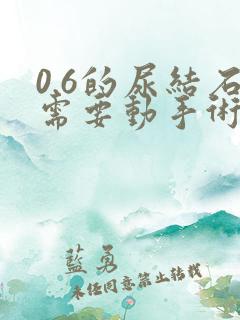 0.6的尿結石
需要動手術
藍勇
未经同意禁止转载